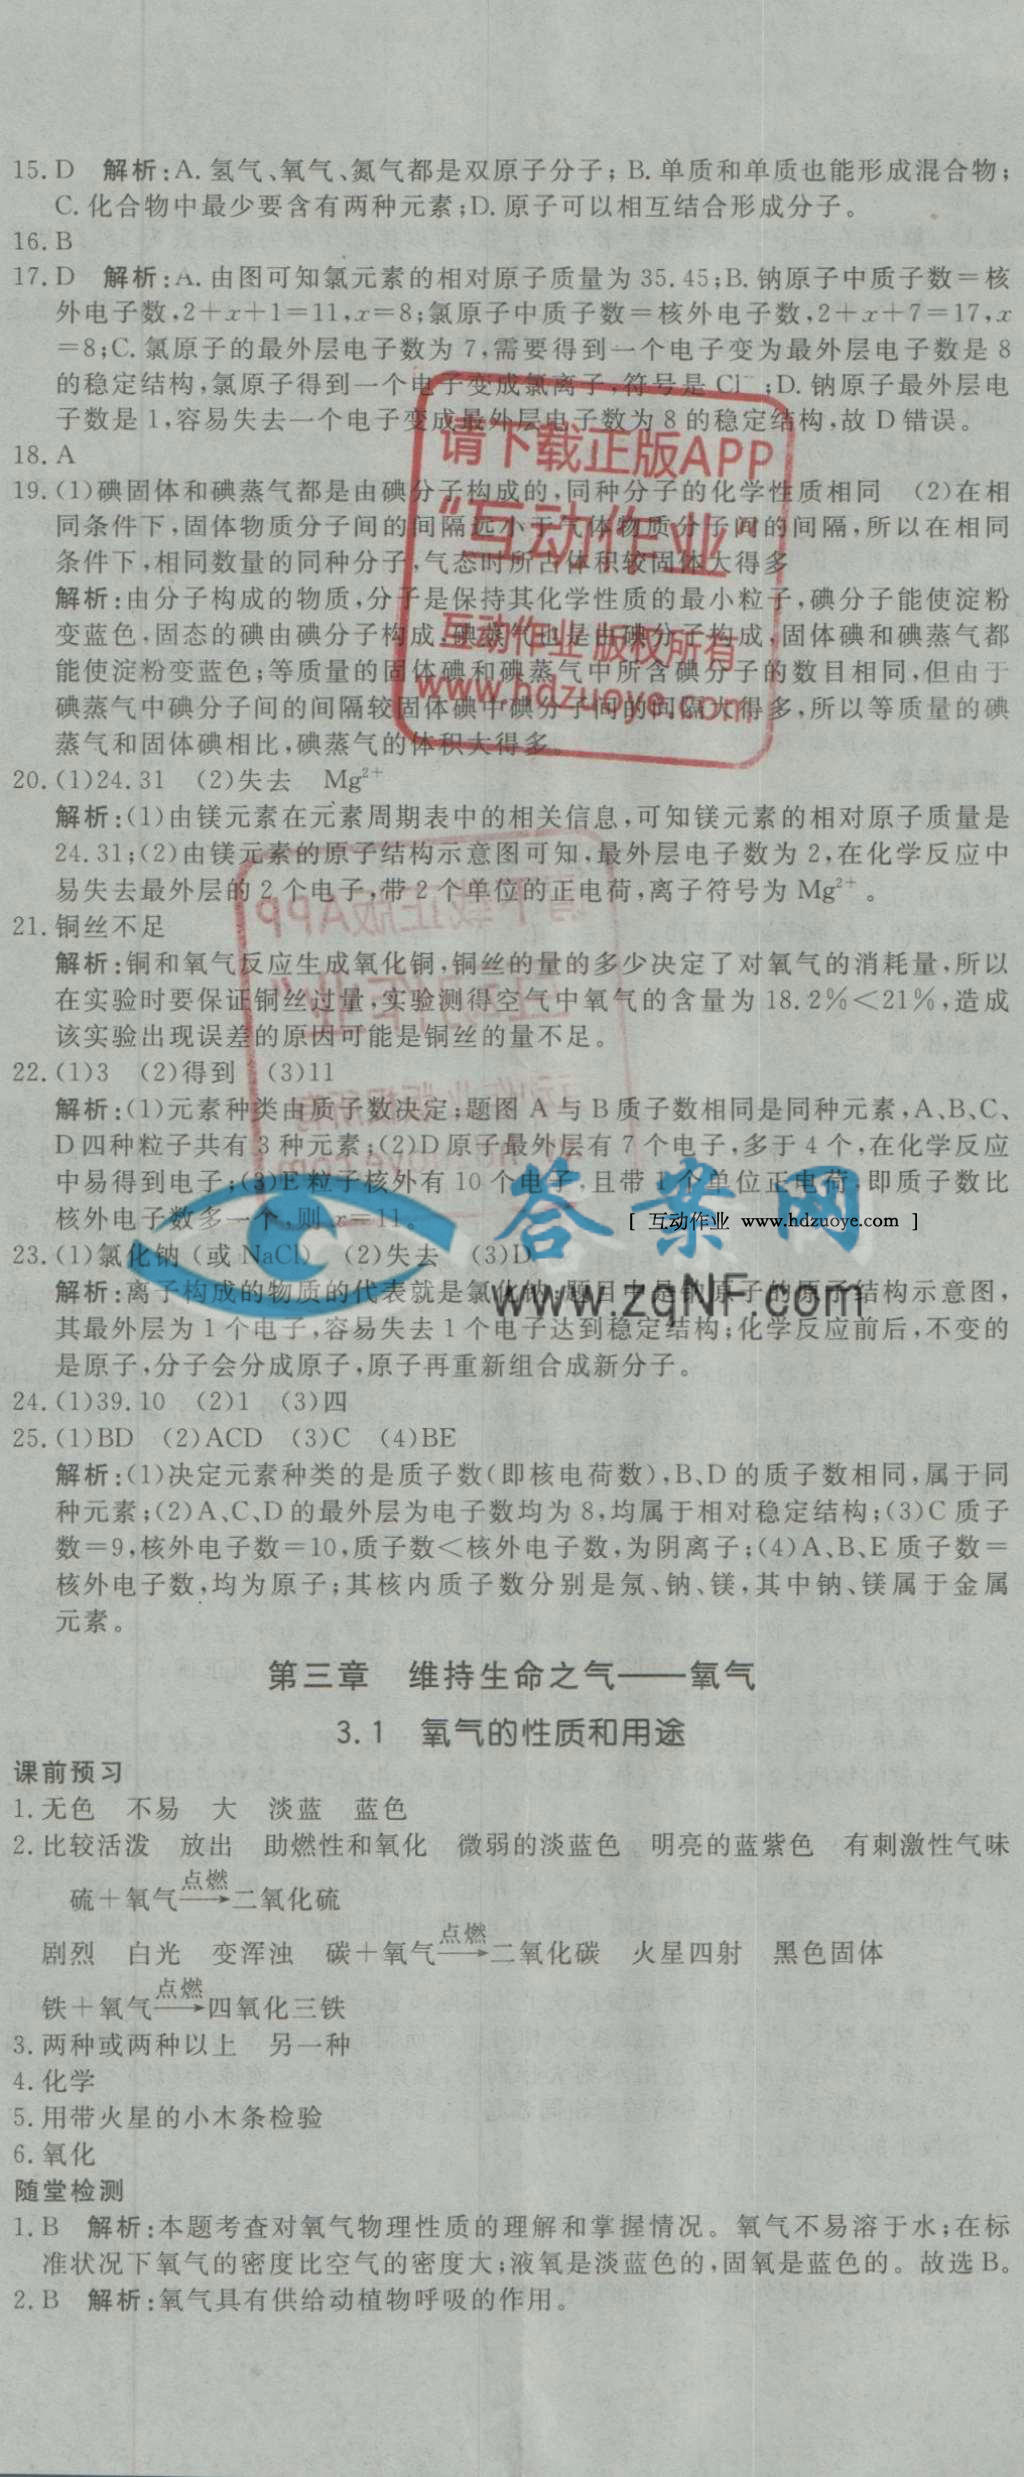 15. D 解析:A. 氢气、氧气、氮气都是双原子分子；B. 单质和单质也能形成混合物；
C. 化合物中最少要含有两种元素；D. 原子可以相互结合形成分子。
16. B
17. D 解析:A. 由图可知氯元素的相对原子质量为 35.45；B. 钠原子中质子数＝核
外电子数，2＋x＋1＝11，x＝8；氯原子中质子数＝核外电子数，2＋x＋7＝17，x
＝8；C. 氯原子的最外层电子数为 7，需要得到一个电子变为最外层电子数是 8
的稳定结构，氯原子得到一个电子变成氯离子，符号是 Cl⁻；D. 钠原子最外层电
子数是 1，容易失去一个电子变成最外层电子数为 8 的稳定结构，故 D 错误。
18. A
19. (1)碘固体和碘蒸气都是由碘分子构成的，同种分子的化学性质相同 (2)在相
同条件下，固体物质分子间的间隔远小于气体物质分子间的间隔，所以在相同
条件下，相同数量的同种分子，气态时所占体积较固体大得多
解析:由分子构成的物质，分子是保持其化学性质的最小粒子，碘分子能使淀粉
变蓝色，固态的碘由碘分子构成，碘蒸气也是由碘分子构成，固体碘和碘蒸气都
能使淀粉变蓝色；等质量的固体碘和碘蒸气中所含碘分子的数目相同，但由于
碘蒸气中碘分子间的间隔较固体碘中碘分子间的间隔大得多，所以等质量的碘
蒸气和固体碘相比，碘蒸气的体积大得多。
请下载正版APP
“互动作业”
互动作业 版权所有
www.hdzuoye.com
20. (1)24.31 (2)失去 Mg²⁺
解析:(1)由镁元素在元素周期表中的相关信息，可知镁元素的相对原子质量是
24.31；(2)由镁元素的原子结构示意图可知，最外层电子数为 2，在化学反应中
易失去最外层的 2 个电子，带 2 个单位的正电荷，离子符号为 Mg²⁺。
21. 铜丝不足
解析:铜和氧气反应生成氧化铜，铜丝的量的多少决定了对氧气的消耗量，所以
在实验时要保证铜丝过量，实验测得空气中氧气的含量为 18.2%＜21%，造成
该实验出现误差的原因可能是铜丝的量不足。
22. (1)3 (2)得到 (3)11
解析:(1)元素种类由质子数决定；题图 A 与 B 质子数相同是同种元素，A、B、C、
D 四种粒子共有 3 种元素；(2)D 原子最外层有 7 个电子，多于 4 个，在化学反应
中易得到电子；(3)E 粒子核外有 10 个电子，且带 1 个单位正电荷，即质子数比
核外电子数多一个，则 x＝11。
答案网
[ 互动作业 www.hdzuoye.com ]
www.zqNF.com
23. (1)氯化钠（或 NaCl） (2)失去 (3)D
解析:离子构成的物质的代表就是氯化钠；题目中是钠原子的原子结构示意图，
其最外层为 1 个电子，容易失去 1 个电子达到稳定结构；化学反应前后，不变的
是原子，分子会分成原子，原子再重新组合成新分子。
24. (1)39.10 (2)1 (3)四
25. (1)BD (2)ACD (3)C (4)BE
解析:(1)决定元素种类的是质子数(即核电荷数)，B、D 的质子数相同，属于同
种元素；(2)A、C、D 的最外层为电子数均为 8，均属于相对稳定结构；(3)C 质子
数＝9，核外电子数＝10，质子数＜核外电子数，为阴离子；(4)A、B、E 质子数＝
核外电子数，均为原子；其核内质子数分别是氖、钠、镁，其中钠、镁属于金属
元素。
第三章 维持生命之气——氧气
3.1 氧气的性质和用途
课前预习
1. 无色 不易 大 淡蓝 蓝色
2. 比较活泼 放出 助燃性和氧化 微弱的淡蓝色 明亮的蓝紫色 有刺激性气味
硫＋氧气 点燃→ 二氧化硫
剧烈 白光 变浑浊 碳＋氧气 点燃→ 二氧化碳 火星四射 黑色固体
铁＋氧气 点燃→ 四氧化三铁
3. 两种或两种以上 另一种
4. 化学
5. 用带火星的小木条检验
6. 氧化
随堂检测
1. B 解析:本题考查对氧气物理性质的理解和掌握情况。氧气不易溶于水；在标
准状况下氧气的密度比空气的密度大；液氧是淡蓝色的，固氧是蓝色的。故选 B。
2. B 解析:氧气具有供给动植物呼吸的作用。